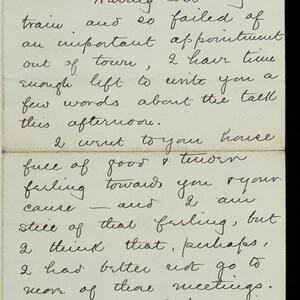 Having lost my
train and so failed of
an important appointment
out of town, I have time
enough left to write you a
few words about the talk
this afternoon.
I went to your house
full of good & tender
feeling towards you & your
cause — and I am
still of that feeling, but
I think that, perhaps,
I had better not go to
more of those meetings.